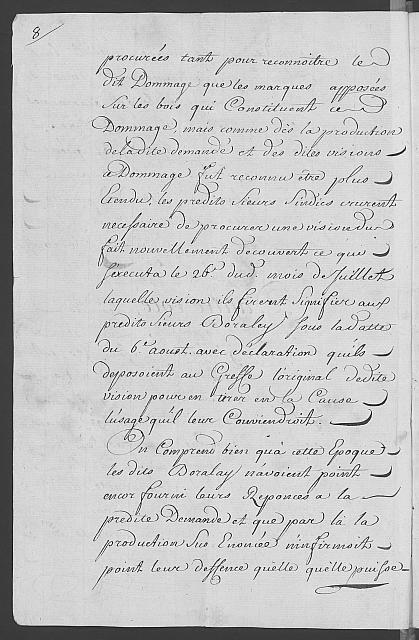 8
procurées tant pour reconnoitre le
dit Dommage que les marques apposées
Sur les bois qui Constituent ce
Dommage, mais comme dès la production
de ladite demande et des dites visions
à Dommage fut reconnu être plus
Etendu, les predits Sieurs Sindics crurent
necessaire de procurer une vision du
fait nouvellement decouvert ce que
S'executa le 26e. dud. mois de Juillet
laquelle vision ils firent Signifier aux
predits Sieurs Boraley Sous la datte
du 6e. aoust. avec déclaration qu'ils
deposoient au Greffe l'original dedite
vision pour en tirer en la Cause
l'usage qu'il leur Conviendroit.
On Comprend bien qu'à cette Epoque
les dits Boralay n'avoient point
encor fourni leurs Reponces a la
predite Demande et que par là la
production Sus Enoncée n'infirmoit
point leur deffence quelle quelle puisse